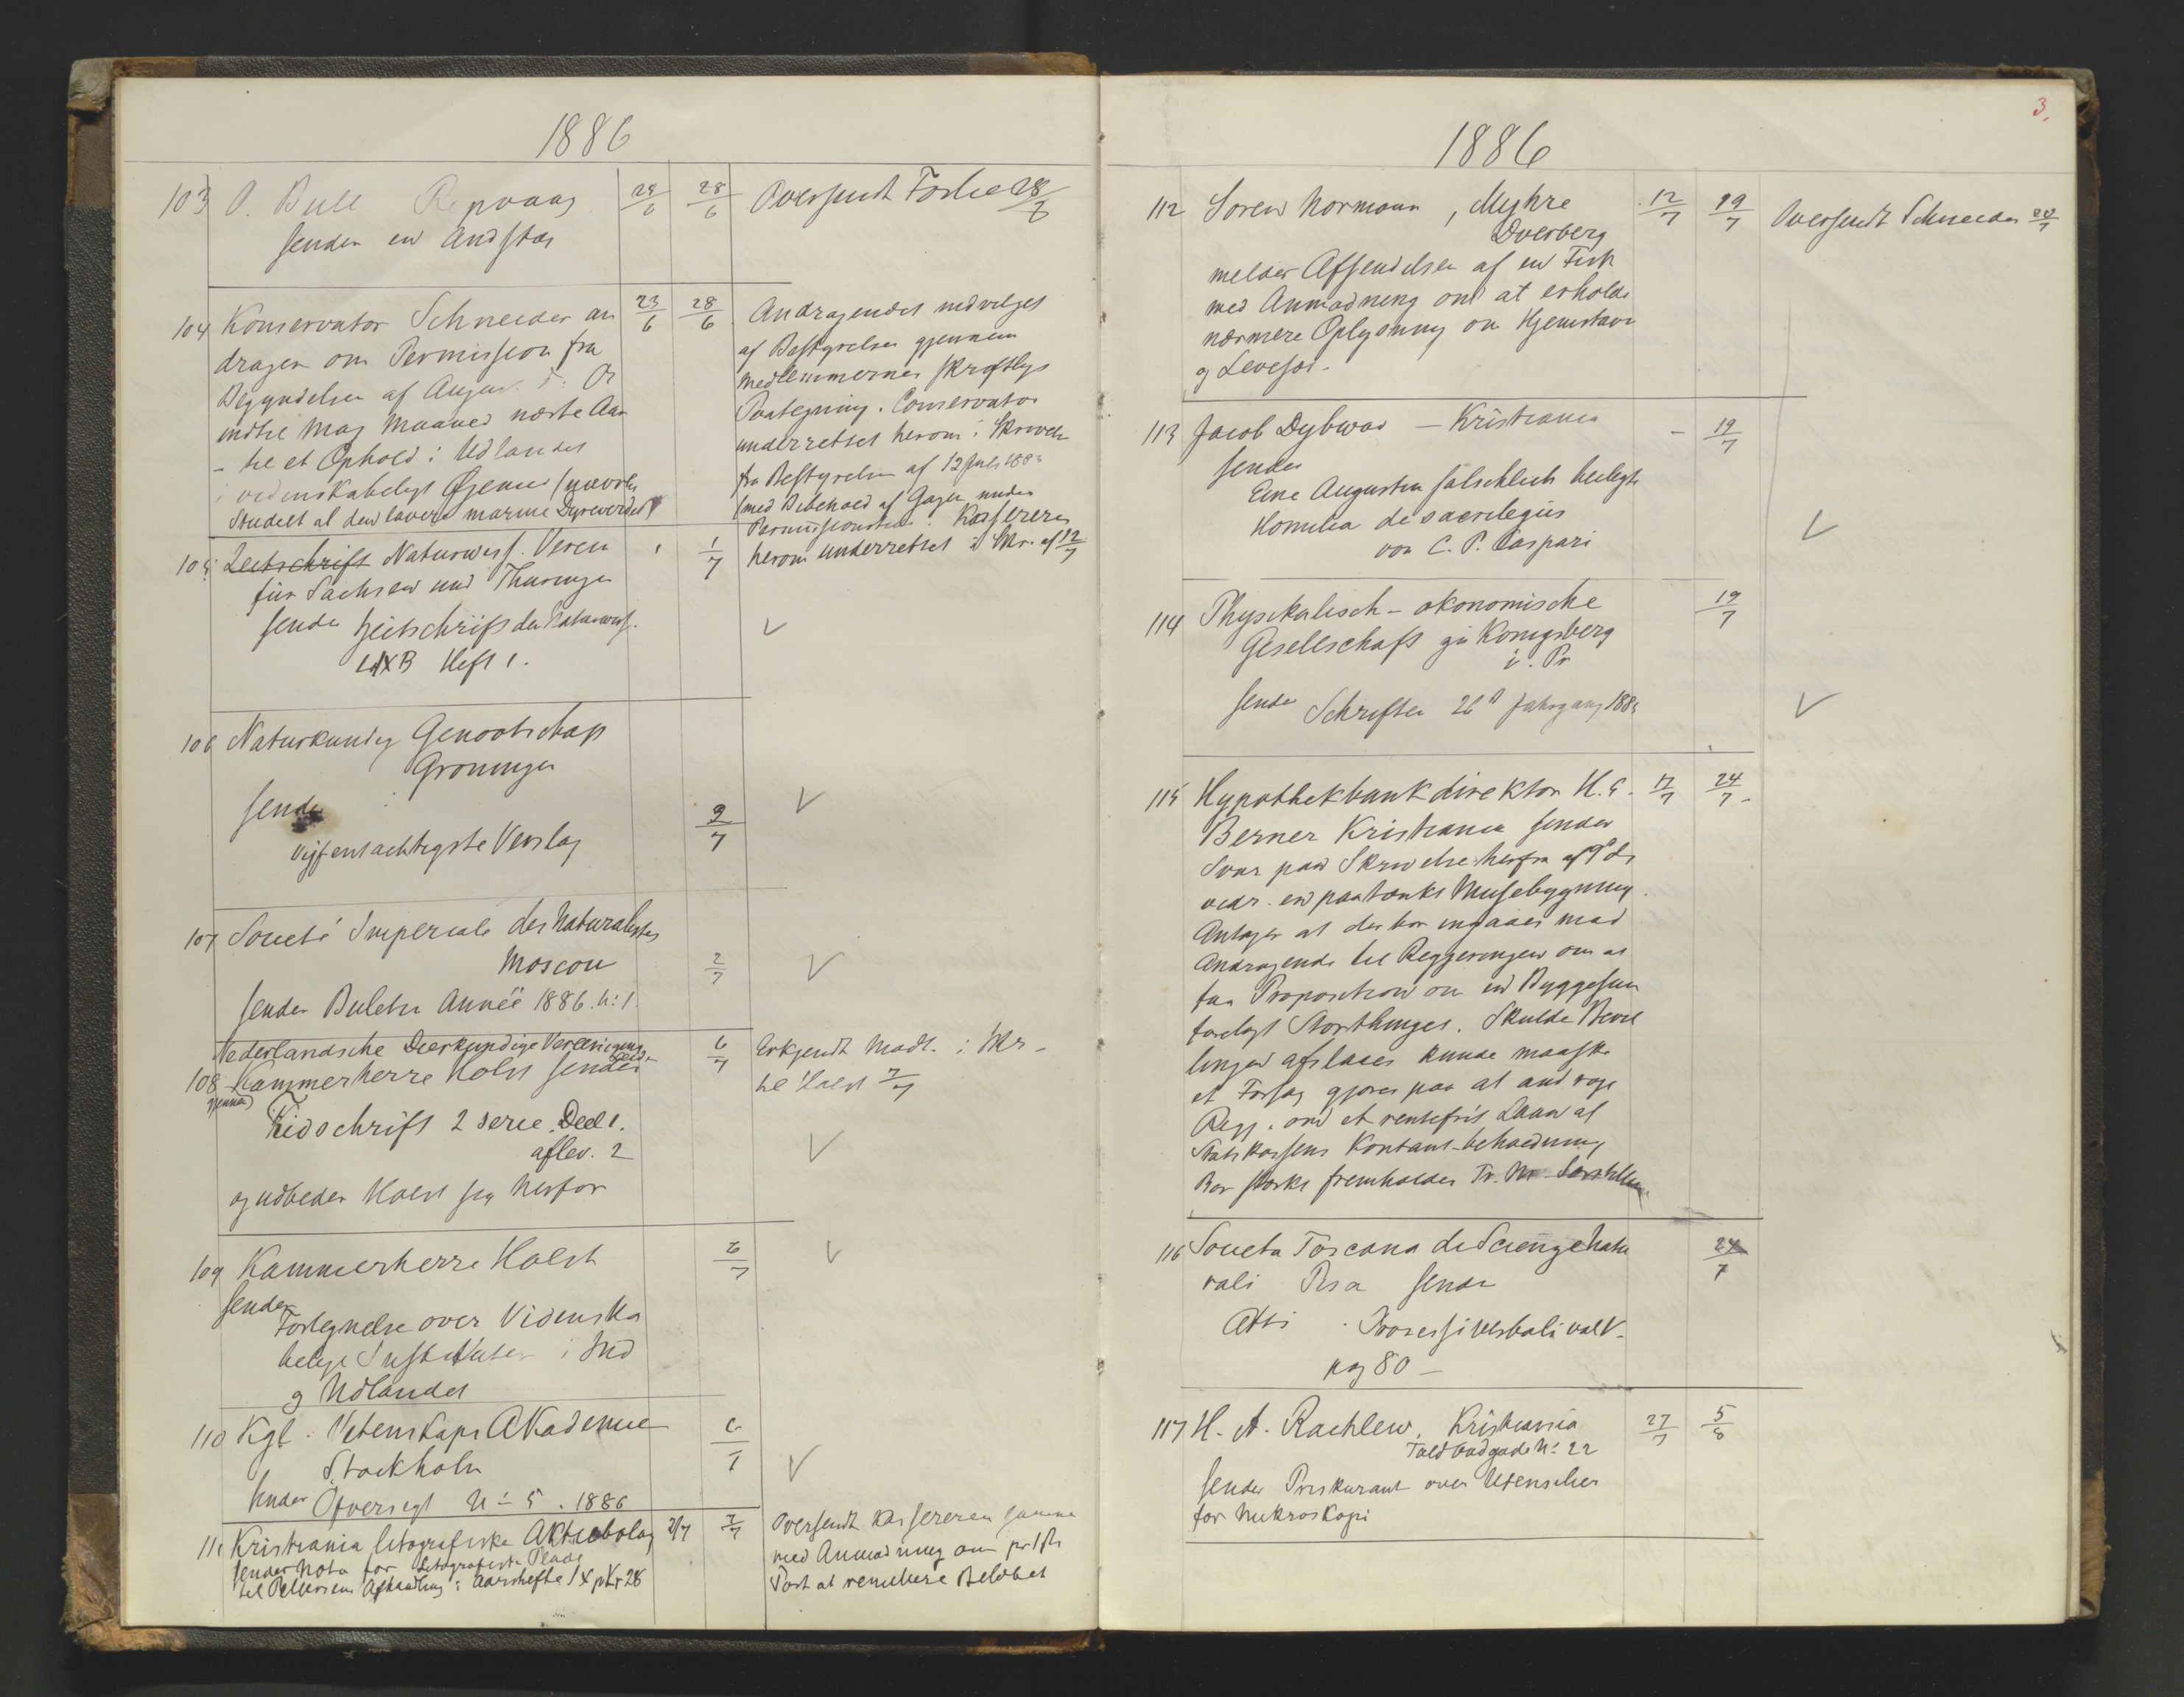 1886
103 O. Bull Repvaag 24/6 28/6 Oversendt Foslie 28/6
sender en Andstær
104 Konservator Schneider an 23/6 28/6
drager om Permission fra
Begyndelsen af August d. Ar
indtil Maj Maaned næste Aar
- til et Ophold i Udlandet
i videnskabeligt Øjemed (navnlig
Studiet af den lavere marine Dyreverden)
Andragendet indvilget
af Bestyrelsen gjennem
Medlemmernes skriftlige
Paategning. Conservator
underrettet herom i Skrivelse
fra Bestyrelsen af 12 Juli 188
(med Bibehold af Gagen under
Permissionstiden. Kassereren
herom underrettet i Skr. af 12/7
105 Zeitschrift Naturwiss. Verein 1/7
für Sachsen und Thüringen
sender Zeitschrift der Naturwiss.
LIX B Heft 1.
106 Naturkundig Genootschap
Groningen
sender 2/7
vijfentachtigste Verslag
107 Societé Imperiale des Naturalistes
Moscou 2/7
sender Buletin Année 1886. N: 1.
Nederlandsche Dierkundige Vereeniging 6/7 Erkjendt Modt. i Skr.
108 Kammerherre Holst sender til Holst 7/7
gjennem
Tidschrift 2 serie. Deel 1.
aflev. 2
og udbeder Holst sig herfor
109 Kammerherre Holst 6/7
sender
Fortegnelse over Videnska
belige Institutter i Ind
og Udlandet
110 Kgl. Vetenskaps Akademie 6/7
Stockholm
sender Öfversigt N: 5. 1886
111 Kristiania litografiske Aktiebolag 2/7 7/7
sender Nota for Litografiske Plade
til Pettersens Afhandling i Aarshefte IX pKr 28
Oversendt Kassereren samme
med Anmodning om pr 1ste
Post at remittere Beløbet
3.
1886
112 Soren Normann, Myhre 12/7 19/7 Oversendt Schneider 20/7
Dverberg
melder Afsendelsen af en Fisk
med Anmodning om at erholde
nærmere Oplysning om Hjemstavn
og Levesæt.
113 Jacob Dybwad – Kristiania – 19/7
sender
Eine Augustin fälschlich beilegte
Homilia de sacrilegiis
von C. P. Caspari
114 Physikalisch-økonomische 19/7
Gesellschaft zu Königsberg
i. Pr
sender Schriften 26 Jahrgang 1885
115 Hypothekbankdirektor H. E. 17/7 24/7
Berner Kristiania sender
Svar paa Skrivelse herfra af 9 ds
vedr. en paatænkt Musebygning.
Antager at der bør indgaaes med
Andragende til Reggeringen om at
faa Proposition om en Byggesum
forelagt Storthinget. Skulde Bevil
lingen afslaaes kunde maaske
et Forsøg gjøres paa at androge
Regg. om et rentefrit Laan af
Statskassens Kontant-behodning
Bør stærkt fremholdes Tr. M
116 Societa Toscana di Scienze Natu 24/7
rali Pisa sender
Atti. Processi verbali vol V.
pag 80 –
117 H. A. Rachlew, Kristiania 27/7 5/8
Toldbodgade N: 22
sender Priskurant over Utensilier
for Mikroskopi